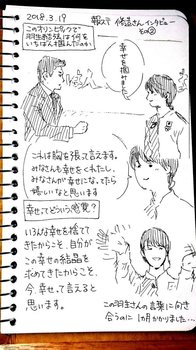 2018.3.19
報ステ 修造さんインタビュー
その②
このオリンピックで
羽生結弦は何を
いちばん掴んだのか
幸せを掴みました
これは胸を張って言えます。
みなさんも幸せをくれたし、
みなさんが幸せになってたら
嬉しいなと思います
幸せってどういう感覚?
いろんな幸せを捨てて
きたからこそ、自分が
この幸せの結晶を
求めてきたからこそ、
今、幸せって言えると
思います。
この羽生さんの言葉に向き
合うのに1ヵ月かかりました…